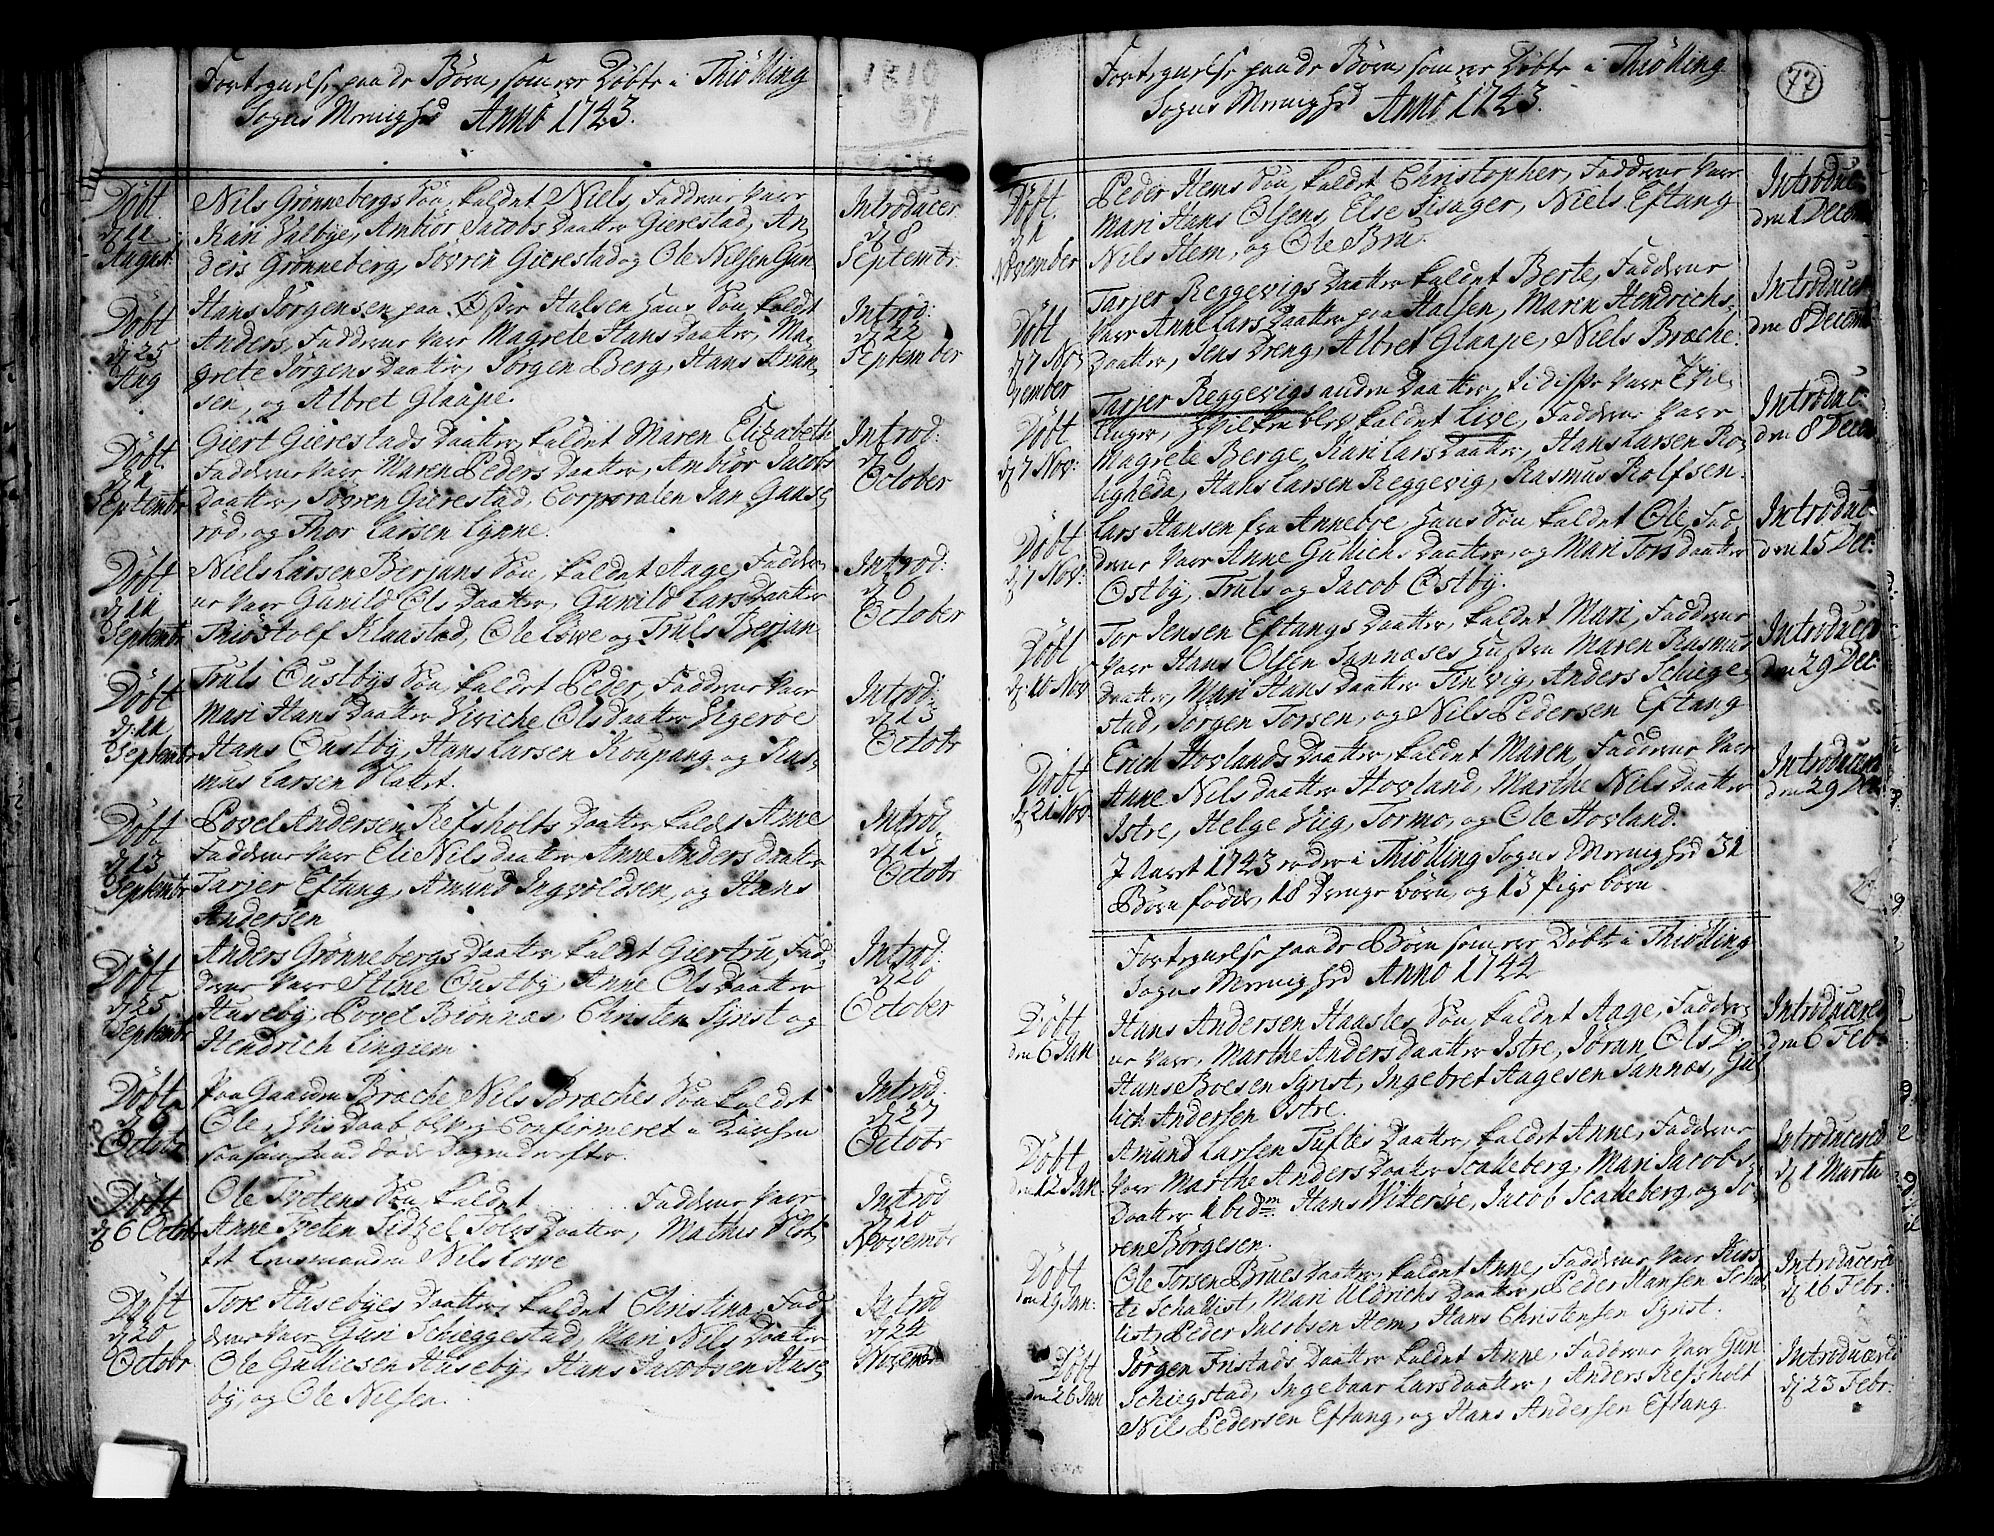 Fortegnelse paa de Børn, som ere Døbte i Thiølling
Sogns Menighed Anno 1743.
Døbt
d. 11
August
Nils Grønnebergs Søn, kaldet Niels, Faddere vare
Kari Valbye, Ambiør Jacobs Daatter Gierestad, An
ders Grønneberg, Søvren Gierestad og Ole Nilsen Gun
Introducer.
d. 8
Septembr.
Døbt
d. 25
Aug
Hans Jörgensen paa Øster Halsen hans Søn, kaldt
Anders, Faddere vare Magrete Hans Daatter, Ma,
grete Jörgens Daatter, Jörgen Berg, Hans Aman,
sen, og Albret Glaape.
Introd:
d. 22
September
Døbt
Septembr
Giert Gierestads Daatter, kaldet Maren Elizabeth
Faddere vare Maren Peders Daatter, Ambiör Jacobs
Daatter, Sövren Gierestad, Corporalen Jan Guns,
röd, og Thor Larsen Lynne.
Introd:
d. 6
October
Døbt
d. 11
Septembr
Niels Larsen Berjans Søn, kaldet Aage, Fadde,
re vare Gunild Ols Daatter, Gunild Lars Daatter
Thiöstolf Klaastad, Ole Löwe og Truls Berjan
Introd:
d. 6
October
Døbt
d. 11
Septembr
Truls Oustbys Søn, kaldet Peder, Faddere vare
Mari Hans Daatter Viviche Ols Daatter Vigeröe
Hans Oustby, Hans Larsen Koupang og Ras,
mus Larsen
Introd:
d. 13
Octobr
Døbt
d. 13
Septembr
Povel Andersen Refsholts Daatter kaldet Anne
Faddere vare Eli Nils Daatter, Anne Anders Daatter
Tarjer Eftang, Amund Ingvoldsen, og Hans
Andersen
Introd:
d. 13
Octobr
Døbt
d. 25
Septembr
Anders Grönnebergs Daatter kaldet Giertru, Fad,
dere vare Stine Oustby, Anne Ols Daatter
Huseby, Povel Biönnæs, Christen Syrist og
Hendrich Lingum
Introd:
d. 20
October
Døbt
Octobr
Paa Gaarden Bræche Nils Bræches Søn kaldet
Ole, hvis Daab blev Confirmeret i Kirchen
Introd.
d. 27
Octobr
Døbt
d. 6 Octobr
Ole Tvetens Søn, kaldet ..... Faddere vare
Anne Tveten Sidzel Solvs Daatter, Mathis
Nils Lowe
Introd
d. 10
Novembr
Døbt
d. 20
Octobr
Tore Husebyes Daatter, kaldet Christina, Fad,
dere vare Guri Schieggestad, Mari Nils Daatter
Ole Gulicsen Huseby, Hans Jacobsen Huse,
by, og Ole Nilsen.
Introd
d. 24
Novembr
77
Fortegnelse paa de Børn, som ere Døbte i Thiølling
Sogns Menighed Anno 1743.
Døbt
d. 1
November
Peder Hems Søn, kaldet Christopher, Faddere vare
Mari Hans Olsens, Else Lisager, Niels Eftang
Nils Hem, og Ole Bru.
Introduc
den 1 Decem
Døbt
d. 7 No,
vember
Tarjer Reggevigs Daatter kaldet Berte, Faddere
vare Anne Lars Daatter paa Halsen, Maren Hendrichs,
Daatter, Jens Dreng, Albret Glaape, Niels Bræche.
Introducer
den 8 Decem
Døbt
d. 7 Nov:
Tarjer Reggevigs anden Daatter, i disse vare Tvil,
linger, hvilken blev kaldet Live, Faddere vare
Magrete Berge, Kari Lars Daatter, Hans Larsen Ro,
ligheda, Hans Larsen Reggevig, Rasmus Rolfsen.
Introduc
den 8 Decem
Døbt
d. 7 Nov:
Lars Hansen fra Anneböe, hans Søn kaldet Ole, Fad,
dere vare Anne Gulichs Daatter, og Mari Tors Daatter
Østby, Truls og Jacob Østby.
Introduc
den 15 Dec:
Døbt
d. 10 Nov
Tor Jensen Eftangs Daatter, kaldet Mari, Faddere
vare Hans Olsen Sannæses hustru Maren Rasmus
Daatter, Mari Hans Daatter Tinvig, Anders Schiege,
stad, Jörgen Torsen, og Nils Pedersen Eftang
Introducer
den 29 Dec:
Døbt
d. 21 Nov
Erich Hovlands Daatter, kaldet Maren, Faddere vare
Anne Nils Daatter Hovland, Marthe Nils Daatter
Istre, Helge Viig, Tormo, og Ole Hovland.
Introducer
den 29 Dec
I Aaret 1743 ere der i Thiölling Sogns Menighed 31
Börn födde, 18 Drenge börn, og 13 Pige börn
Fortegnelse paa de Børn som ere Døbte i Thiølling
Sogns Menighed Anno 1744
Døbt
den 6 Jan
Hans Andersen Haasles Søn, kaldet Aage, Fadde,
re vare, Marthe Anders Daatter Istre, Jöran Ols D.
Hans Boesen Syrist, Ingebret Aagesen Sannæs, Gu,
lich Andersen Istre.
Introducered
den 6 Feb:
Døbt
den 12 Jan.
Amund Larsen Tuftes Daatter, kaldet Anne, Faddere
vare Marthe Anders Daatter Scakeberg, Mari Jacobs,
Daatter ibidm Hans Vitersöe, Jacob Scakeberg, og Sö,
ren Börgesen.
Introducered
d. 1 Martii
Døbt
den 19 Jan:
Ole Torsen Brues Daatter, kaldet Anne, Faddere vare Kirs,
ti Schallist, Mari Uldrichs Daatter, Peder Hansen Schal
list, Peder Jacobsen Hem, Hans Christensen Syrist.
Introducered
d. 16 Febr:
Døbt
den 26 Jan
Jörgen Fristads Daatter kaldet Anne, Faddere vare Gun
Schiegstad, Ingebaar Larsdaatter, Anders Refsholt
Nils Pedersen Eftang, og Hans Andersen Eftang
Introducered
d. 23 Febr.